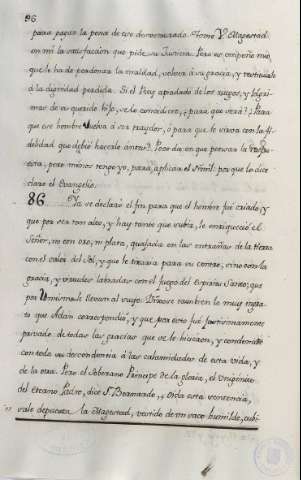 96
para pagar la pena de ese desventurado. Tome V. Magestad
en mi la satisfaccion que pide su Justicia. Pero es empeño mio,
que le ha de perdonar la maldad, volverà à su gracia, y restituirle
à la dignidad perdida. Si el Rey apiadado de los ruegos, y lagri-
mas de su querido hijo, se lo concediere, para que serà? Para
que ese hombre vuelva à ser traydor, ò para que le sirva con la fi-
delidad que debiò hacerlo antes? Poco da en que pensar la respu-
esta, pero menos tengo yo, para aplicar el simil: por que lo de-
clara el Evangelio.
86 Ya se declarò el fin para que el hombre fuè criado, y
que por ser tan alto, y hay tanto que subir, le enriqueciò el
Señor, no con oro, ni plata, quajada en las entrañas de la tierra
con el calor del Sol, y que le tirara para su centro; sino con la
gracia, y virtudes labradas con el fuego del Espiritu Santo; que
por llevarle al suyo. Dixose tambien lo muy ingra-
to que Adan correspondiò, y que por esto fuè
privado de todas las gracias que se le hicieron, y condenado
con toda su descendencia à las calamidades de esta vida, y
de la otra. Pero el Soberano Principe de la gloria, el Unigenito
del Eterno Padre, dice S. Bernardo, oida esta sentencia,
sale depuesta la Magestad, vestido de un saco humilde, cubi-